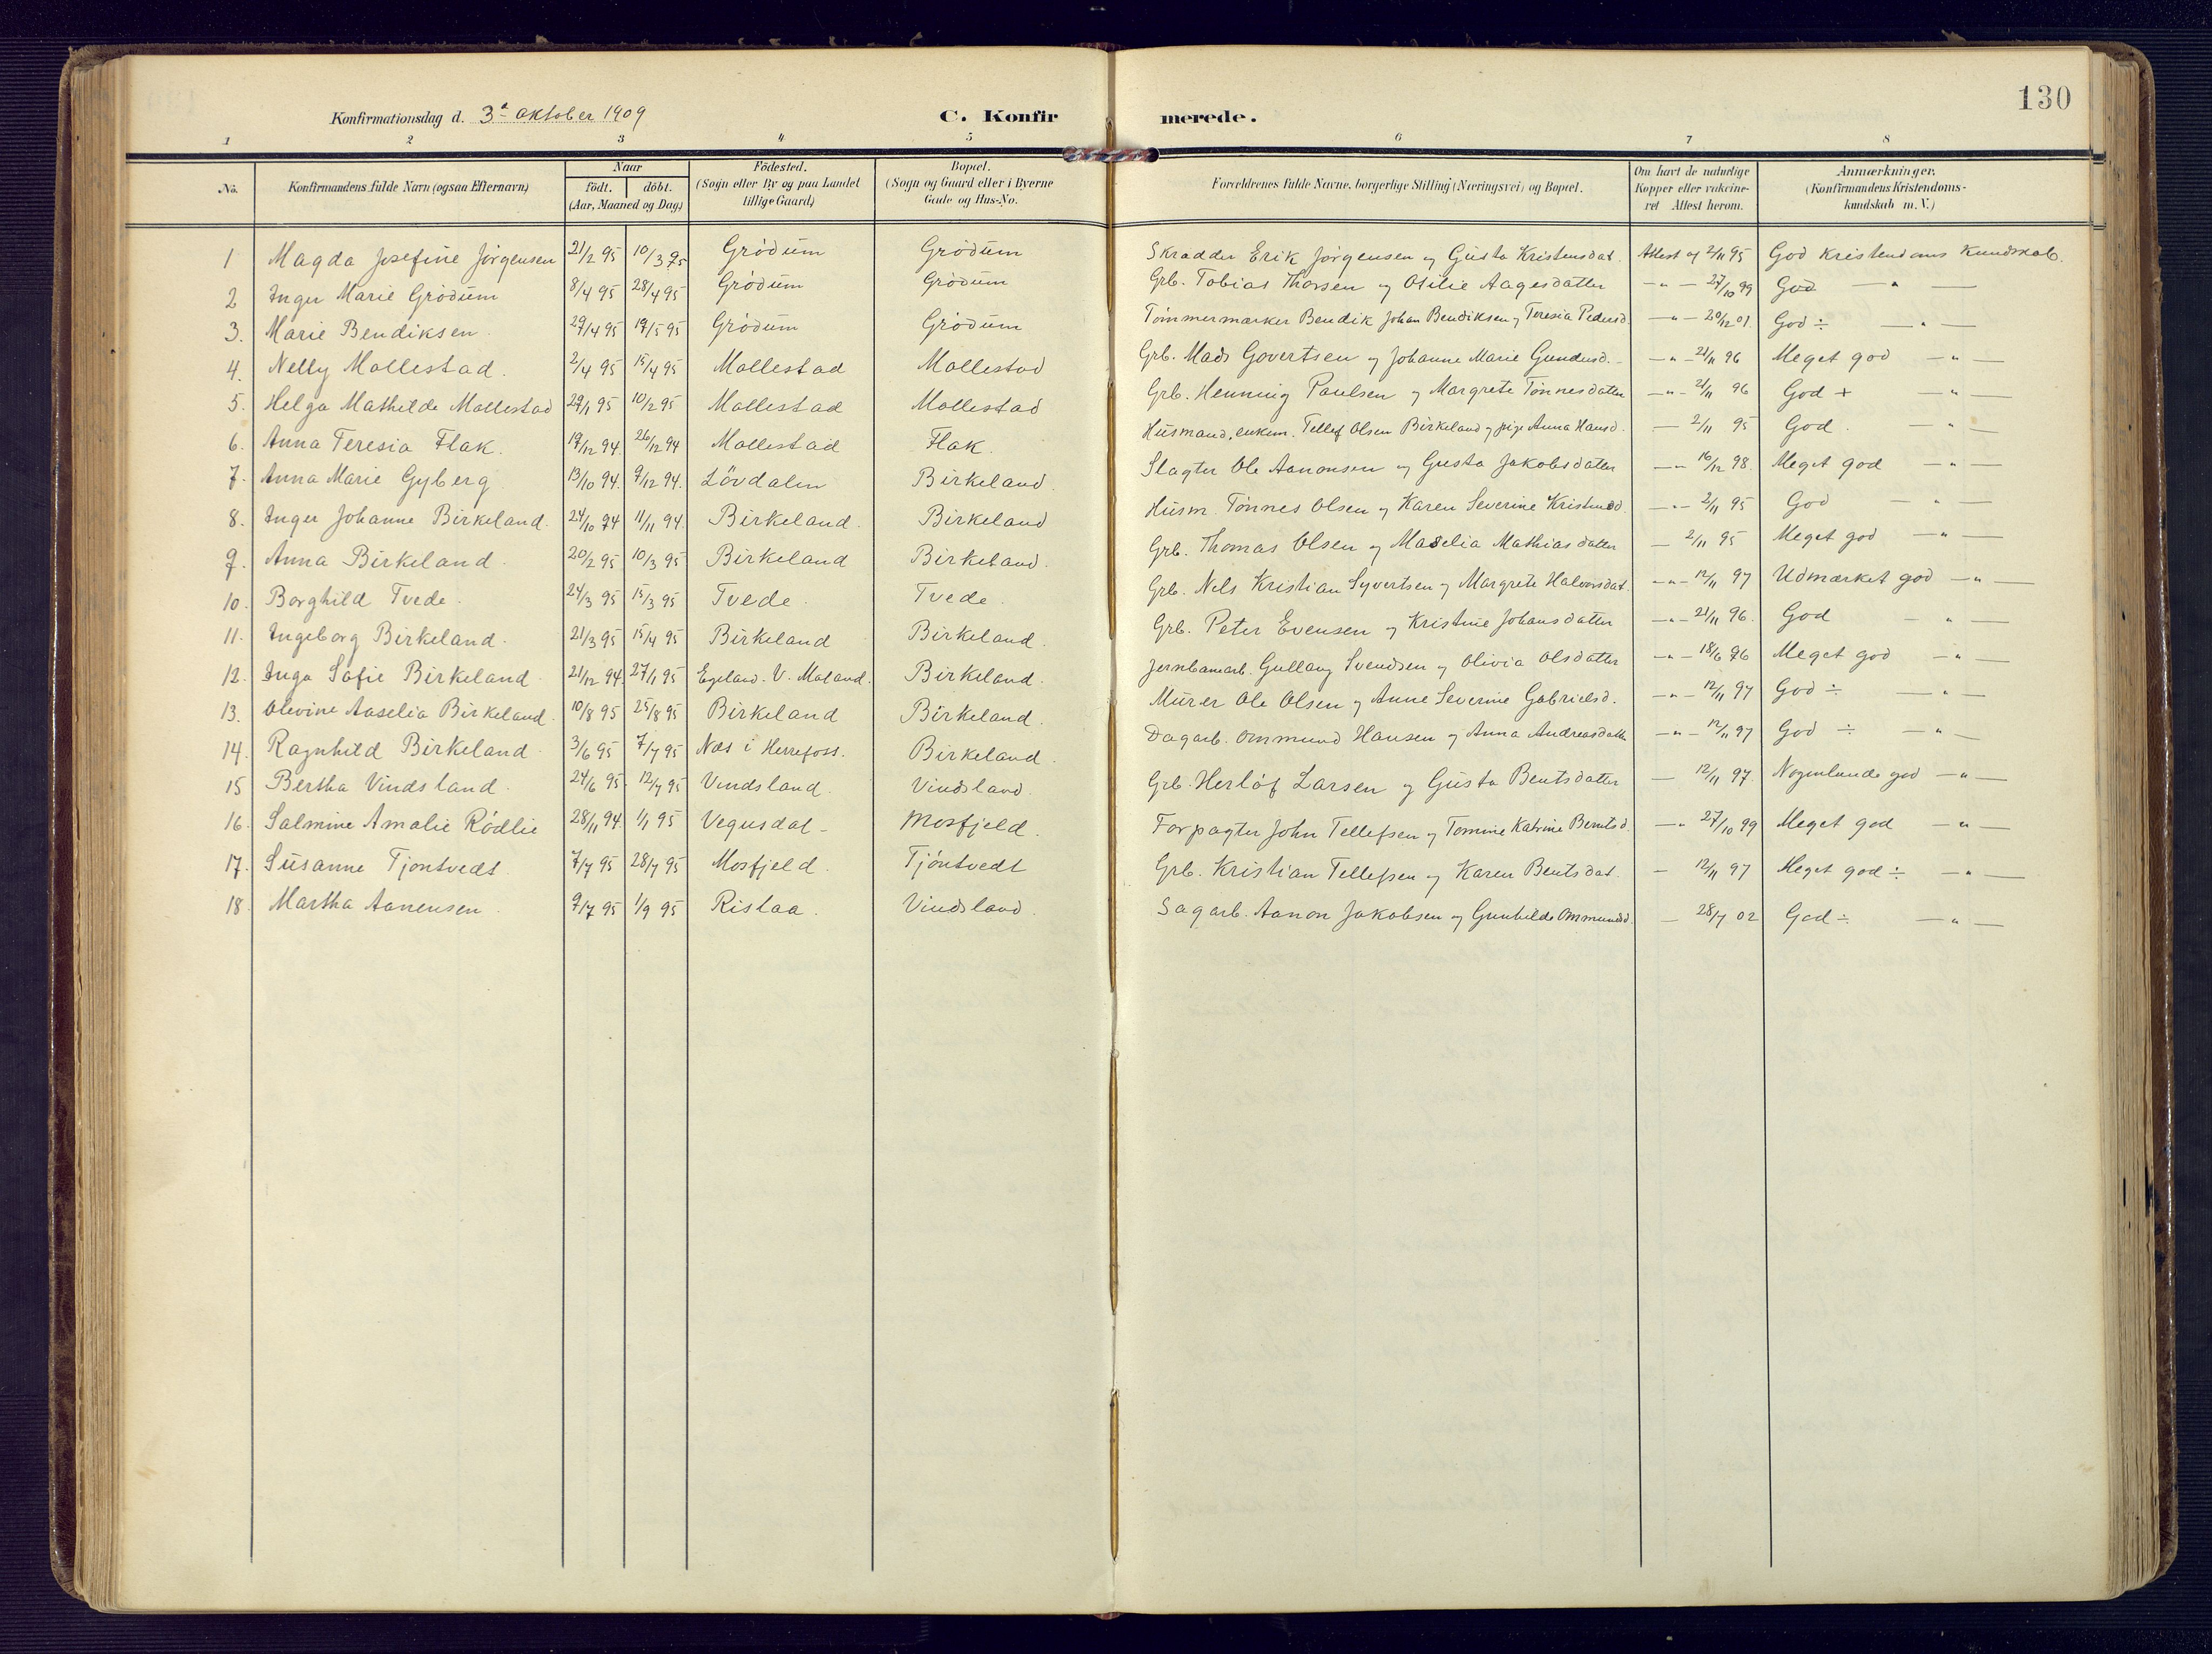 130
Konfirmationsdag d. 3ᵈ⁻ Oktober 1909 C. Konfirmerede.
1 2 3 4 5 6 7 8
No. Konfirmandens fulde Navn (ogsaa Efternavn) Naar födt. döbt. (Aar, Maaned og Dag) Födested. (Sogn eller By og paa Landet tillige Gaard) Bopæl. (Sogn og Gaard eller i Byerne Gade og Hus-No. Forældrenes fulde Navne, borgerlige Stilling (Næringsvei) og Bopæl. Om havt de naturlige Kopper eller vakcineret Attest herom. Anmærkninger. (Konfirmandens Kristendomskundskab m. V.)
1 Magda Josefine Jörgensen 21/2 95 10/3 95 Grödum Grödum Skrædder Erik Jörgensen og Gusta Kristensdat. Attest af 2/11 95 God Kristendoms Kundskab.
2 Inger Marie Grödum 8/4 95 28/4 95 Grödum Grödum Grb. Tobias Thorsen og Otilie Aagesdatter —"— 27/10 99 God —"—
3. Marie Bendiksen. 29/4 95 19/5 95 Grödum Grödum Tömmermærker Bendik Johan Bendiksen og Teresia Pedersd. —"— 20/12 01. God ÷ —"—
4. Nelly Mollestad. 2/4 95 15/4 95 Mollestad Mollestad Grb. Mads Govertsen og Johanne Marie Gundersd. —"— 21/11 96 Meget god —"—
5. Helga Mathilde Mollestad 29/1 95 10/2 95 Mollestad Mollestad Grb. Henning Paulsen og Margrete Tönnesdatter —"— 21/11 96 God + —"—
6. Anna Teresia Flak. 19/12 94. 26/12 94 Mollestad Flak. Husmand, enkem. Tellef Olsen Birkeland og pige Anna Hansd. — 2/11 95 God. —"—
7. Anna Marie Gyberg 13/10 94. 9/12 94. Lövdalen Birkeland. Slagter Ole Aanonsen og Gusta Jakobsdatter —"— 16/12 98. Meget god —"—
8. Inger Johanne Birkeland. 24/10 94 11/11 94. Birkeland. Birkeland Husm. Tönnes Olsen og Karen Severine Kristensd. —"— 2/11 95 God —"—
9. Anna Birkeland 20/2 95 10/3 95 Birkeland Birkeland. Grb. Thomas Olsen og Maselia Mathiasdatter — 2/11 95 Meget god —"—
10. Borghild Tvede. 24/3 95 15/3 95 Tvede. Tvede. Grb. Nels Kristian Syvertsen og Margrete Halvorsdat. —"— 12/11 97 Udmærket god —"—
11. Ingeborg Birkeland. 21/3 95 15/4 95 Birkeland Birkeland. Grb. Peter Evensen og Kristine Johansdatter —"— 21/11 96. God —"—
12. Inga Sofie Birkeland 21/12 94. 27/1 95 Egeland. V. Moland. Birkeland. Jernbanearb. Gullaug Svendsen og Olivia Olsdatter —"— 18/6 96 Meget god —"—
13. Olevine Aaselia Birkeland. 10/8 95 25/8 95 Birkeland Birkeland. Murer Ole Olsen og Anne Severine Gabrielsd. —"— 12/11 97 God ÷ —"—
14. Ragnhild Birkeland 3/6 95 7/7 95 Næs i Herrefoss. Birkeland. Dagarb. Ommund Hansen og Anna Andreasdatt. —"— 12/11 97 God ÷ —"—
15 Bertha Vindsland. 24/6 95. 12/7 95 Vindsland. Vindsland. Grb. Herlöf Larsen og Gusta Bentsdatter — 12/11 97. Nogenlunde god —"—
16. Salmine Amalie Rödlie 28/11 94. 1/1 95 Vegusdal – Mosfjeld. Forpagter John Tellefsen og Tomine Katrine Berntsd. —" 27/10 99 Meget god —"—
17. Susanne Tjöntvedt. 7/7 95 28/7 95 Mosfjeld. Tjöntvedt Grb. Kristian Tellefsen og Karen Bentsdat. — 12/11 97 Meget god ÷ —"—
18. Martha Aanensen. 9/7 95 1/9 95 Rislaa. Vindsland. Sagarb. Aanon Jakobsen og Gunhilde Ommundsd. — 28/7 02 God ÷ —"—